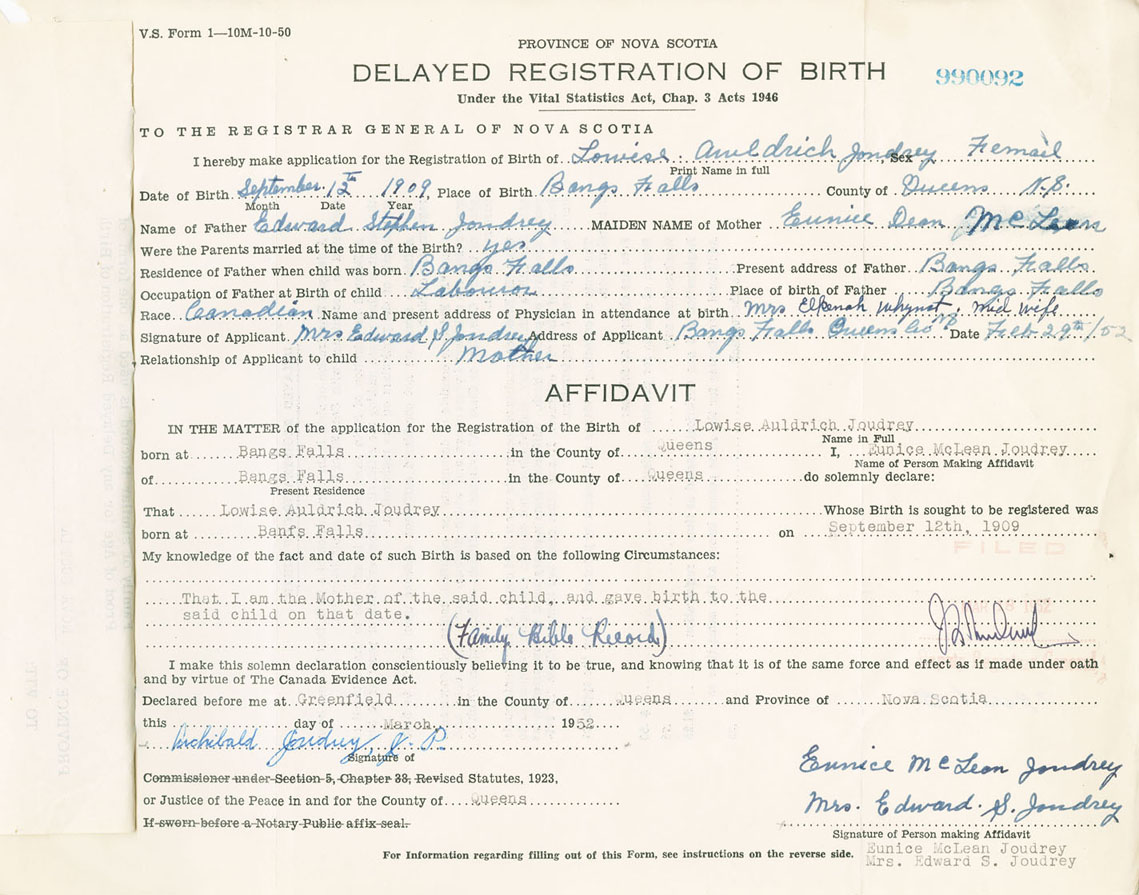 V.S. Form 1—10M-10-50
PROVINCE OF NOVA SCOTIA
DELAYED REGISTRATION OF BIRTH
990092
Under the Vital Statistics Act, Chap. 3 Acts 1946
TO THE REGISTRAR GENERAL OF NOVA SCOTIA
I hereby make application for the Registration of Birth of Lowise Auldrich Joudrey Sex Femail
Print Name in full
Date of Birth September 12th 1909 Place of Birth Bangs Falls County of Queens N.S.
Month Date Year
Name of Father Edward Stephen Joudrey MAIDEN NAME of Mother Eunice Dean McLean
Were the Parents married at the time of the Birth? yes
Residence of Father when child was born Bangs Falls Present address of Father Bangs Falls
Occupation of Father at Birth of child Labouror Place of birth of Father Bangs Falls
Race Canadian Name and present address of Physician in attendance at birth Mrs Elkanah Whynot, Mid Wife
Signature of Applicant Mrs Edward S Joudrey Address of Applicant Bangs Falls Queens Co Date Feb 29th/52
Relationship of Applicant to child Mother
AFFIDAVIT
IN THE MATTER of the application for the Registration of the Birth of Lowise Auldrich Joudrey
Name in Full
born at Bangs Falls in the County of Queens I, Eunice McLean Joudrey
Name of Person Making Affidavit
of Bangs Falls in the County of Queens do solemnly declare:
Present Residence
That Lowise Auldrich Joudrey Whose Birth is sought to be registered was
born at Banfs Falls on September 12th, 1909
My knowledge of the fact and date of such Birth is based on the following Circumstances:
FILED
That I am the Mother of the said child, and gave birth to the
said child on that date.
(Family Bible Record)
I make this solemn declaration conscientiously believing it to be true, and knowing that it is of the same force and effect as if made under oath
and by virtue of The Canada Evidence Act.
Declared before me at Greenfield in the County of Queens and Province of Nova Scotia
this day of March 1952
Archibald Joudrey, J. P.
Signature of
Commissioner under Section 5, Chapter 38, Revised Statutes, 1923,
or Justice of the Peace in and for the County of Queens
If sworn before a Notary Public affix seal.
Eunice McLean Joudrey
Mrs. Edward S. Joudrey
Signature of Person making Affidavit
Eunice McLean Joudrey
Mrs. Edward S. Joudrey
For Information regarding filling out of this Form, see instructions on the reverse side.